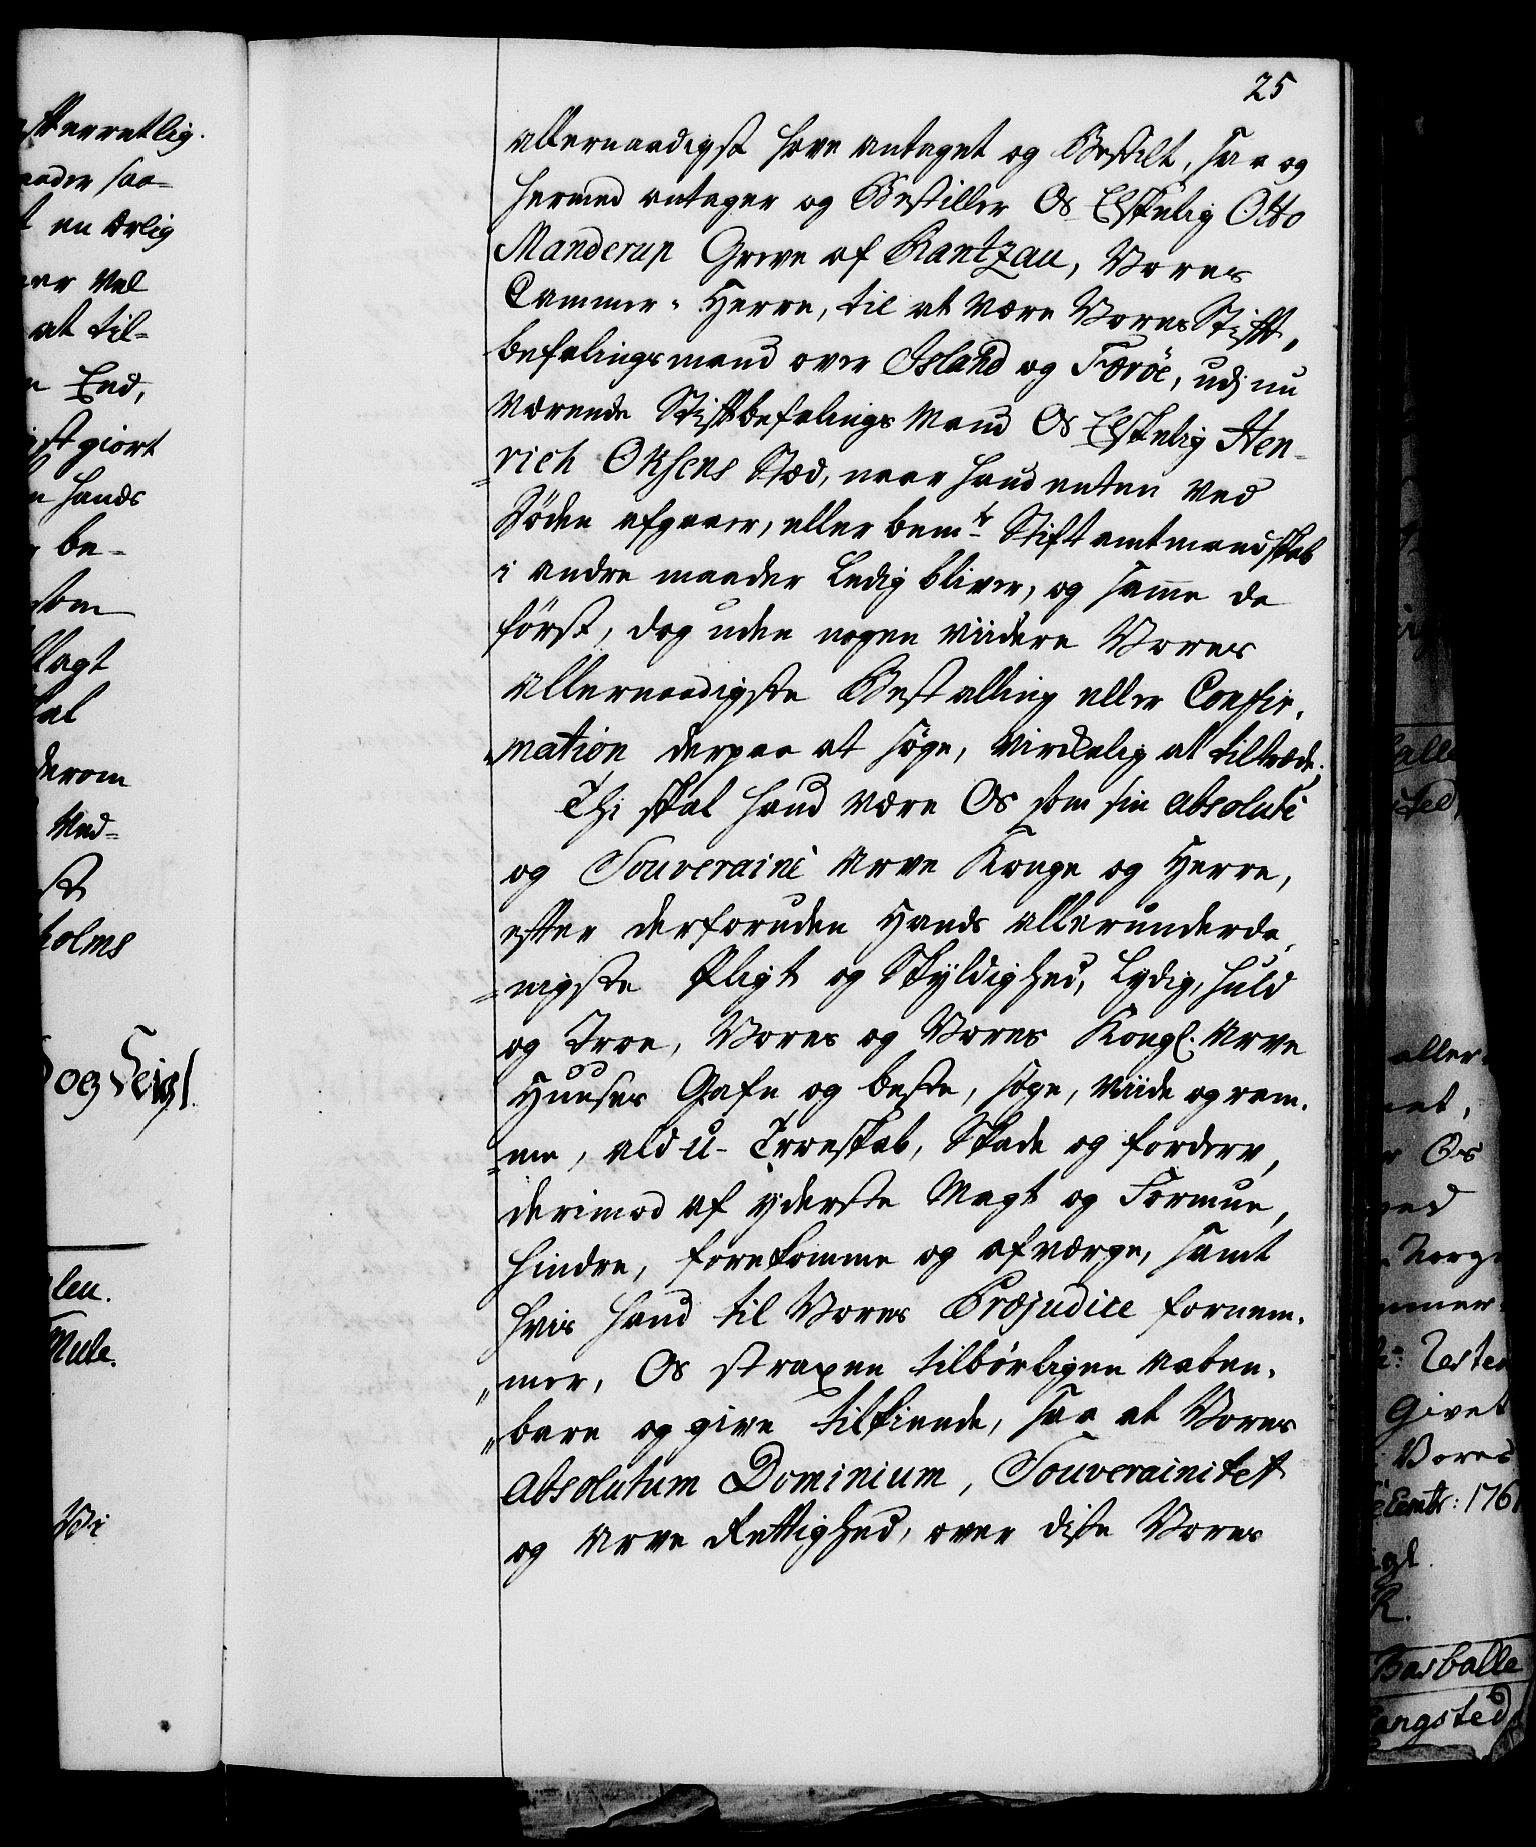 25
allernaadigst have antaget og Bestilt, saa og
hermed antager og Bestiller Os Elskelig Otto
Manderup Greve af Rantzau, Vores
Cammer-Herre, til at være Vores Stift,
befalingsmand over Island og Færöe, udj nu
værende Stiftbefalings Mand Os Elskelig Hen-
=rich Oksens Stæd, naar hand enten ved
Döden afgaaer, eller bemte Stiftamtmandskab
i andre maader Ledig bliver, og samme da
först, dog uden nogen viidere Vores
allernaadigste Bestalling eller Confir,
mation derpaa at söge, virkelig at tiltræde.
Thi skal hand være Os som sin absolute
og Souveraine Arve Konge og Herre,
efter derforuden Hands allerunderda,
=nigste Pligt og Skyldighed, Lydig, huld
og Troe, Vores og Vores Kongl. Arve
Huuses Gafn og beste, söge, viide og ram,
=me, ald U-Troeskab, Skade og forderv,
derimod af yderste Magt og Formue,
hindre, forekomme og afværge, samt
hvis hand til Vores Præjudice fornem,
mer, Os straxen tilbörligen aaben,
bare og give tilkiende, saa at Vores
absolutum Dominium, Souverainitet
og Arve Rettighed, over disse Vores
efterretlig.
maader saa=
en ærlig
vel
at til=
End,
giort
hands
be=
som
lagt
skal
derom
ved=
holms
og Seigl.
Vi
aller
Os
Norge
Givet
Vores
1761
Basballe
Langsted